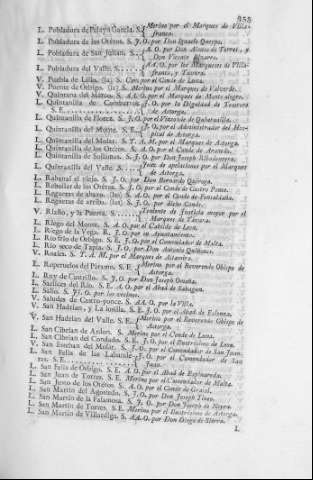 855
L. Pobladura de Pelayo Garcia. S. Merino por el Marques de Villa-
franca.
L. Pobladura de los Oteros. S. J. O. por Don Ignacio Quiropa.
L. Pobladura de San Julian. S. A. O. por Don Alonso de Torres, y
Don Vicente Bizarro.
L. Pobladura del Valle. S. AA. O. por los Marqueses de Villa-
franca, y Tavara.
V. Puebla de Lillo. (la) S. por el Conde de Luna.
V. Puente de Orbigo. (la) S. Merino por el Marques de Valverde.
V. Quintana del Marco. S. AA. O. por el Marques de Montealegre.
L. Quintanilla de Combarros J. O. por la Dignidad de Tesorero
S. E. de Astorga.
L. Quintanilla de Florez. S. J. O. por el Vizconde de Quintanilla.
L. Quintanilla del Monte. S. E. J. O. por el Administrador del Hos-
pital de Astorga.
L. Quintanilla del Molar. S. T. A. M. por el Marques de Astorga.
L. Quintanilla de los Oteros. S. A. O. por el Conde de
L. Quintanilla de Sollamas. S. J. O. por Don Joseph
L. Quintanilla del Valle. S. Juez de apelaciones por el Marques
de Astorga.
L. Rabanal el viejo. S. J. O. por Don Bernardo Quiroga.
L. Rebollar de los Oteros. S. J. O. por el Conde de Castro Ponce.
L. Regueras de abaxo. (las) S. A. O. por el Conde de Fontalada.
L. Regueras de arriba. (las) S. J. O. por dicho Conde.
V. Riaño, y la Puerta. S. Teniente de Justicia mayor por el
Marques de Tavara.
L. Riego del Monte. S. A. O. por el Cabildo de Leon.
L. Riego de la Vega. R. J. O. por su Ayuntamiento.
L. Riofrio de Orbigo. S. E. J. O. por el Comendador de Malta.
L. Rio seco de Tapia. S. J. O. por Don Antonio Quiñones.
V. Roales. S. T. A. M. por el Marques de
L. Roperuelos del Páramo. S. E. Merino por el Reverendo Obispo de
Astorga.
L. Ruy de Castrillo. S. J. O. por Don Joseph
L. Saelices del Rio. S. E. A. O. por el Abad de Sahagun.
L. Salio. S. J. O. por los vecinos.
V. Saludes de Castro-ponce. S. AA. O. por la Villa.
V. San Hadrian, y La losilla. S. E. J. O. por el Abad de Eslonza.
V. San Hadrian del Valle. S. E. Merino por el Reverendo Obispo de
Astorga.
L. San Cibrian de Ardon. S. Merino por el Conde de Luna.
L. San Cibrian del Condado. S. E. J. O. por el Ilustrisimo de Leon.
V. San Esteban del Molar. S. J. O. por el Comendador de San Juan.
L. San Felix de las Lavande- J. O. por el Comendador de San
ras. S. E. Juan.
L. San Felix de Orbigo. S. E. A. O. por el Abad de
L. San Juan de Torres. S. E. Merino por el Comendador de Malta.
L. San Justo de los Oteros. S. A. O. por el Conde de Grajal.
L. San Martin del Agostedo. S. J. O. por Don Joseph
L. San Martin de la Falamosa. S. J. O. por Don Joseph de
L. San Martin de Torres. S. E. Merino por el Ilustrisimo de Astorga.
L. San Martin de Villaorejo. S. AA. O. por Don Diego de Sierra.
L.